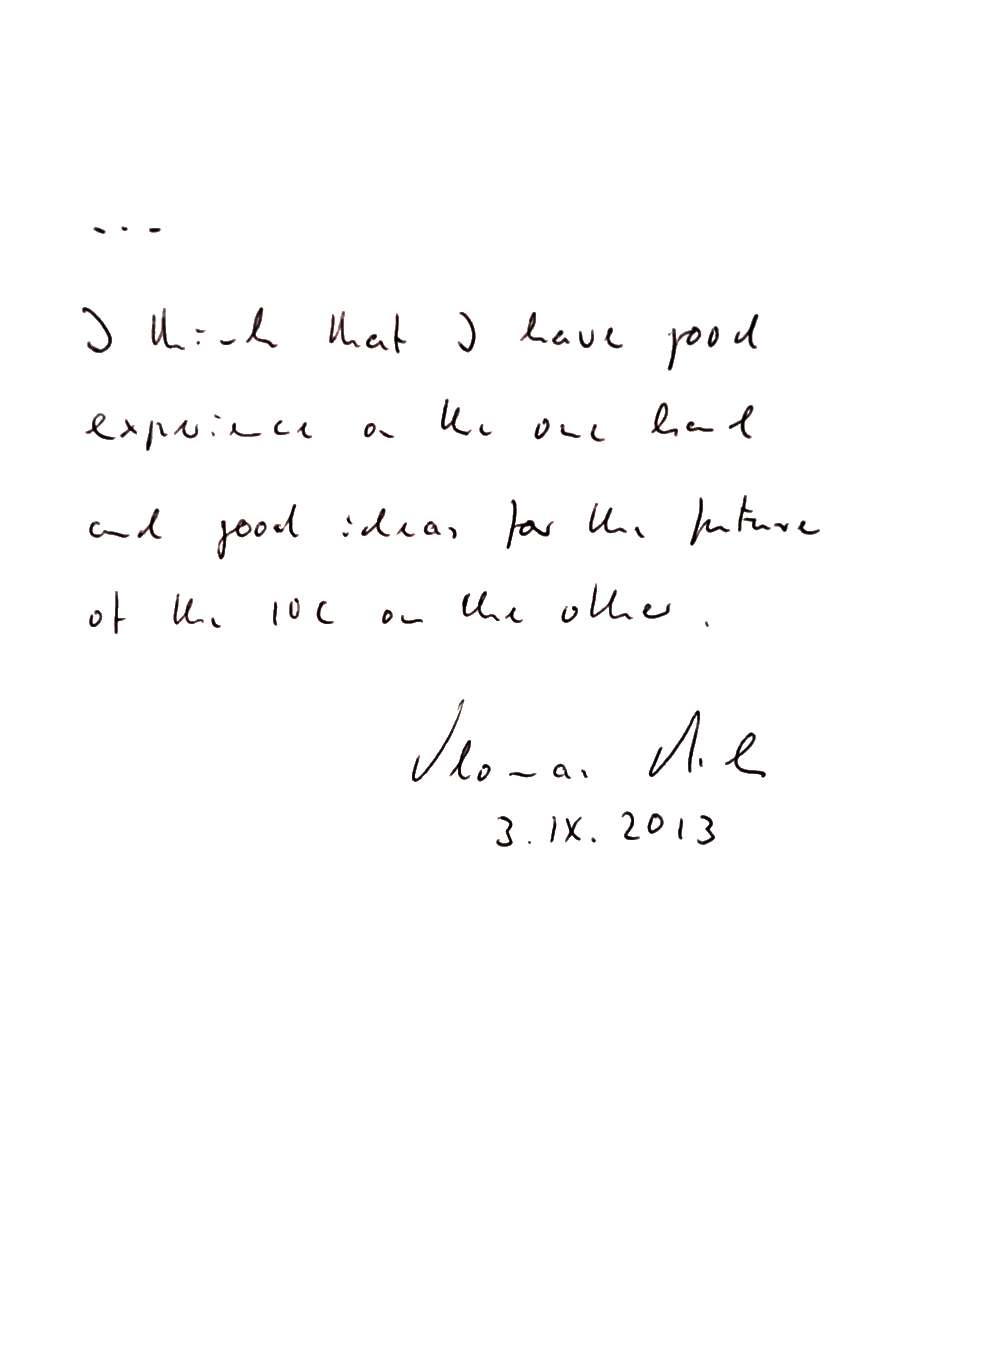 ...
I think that I have good
experience on the one hand
and good ideas for the future
of the IOC on the other.
Thomas
3.IX.2013